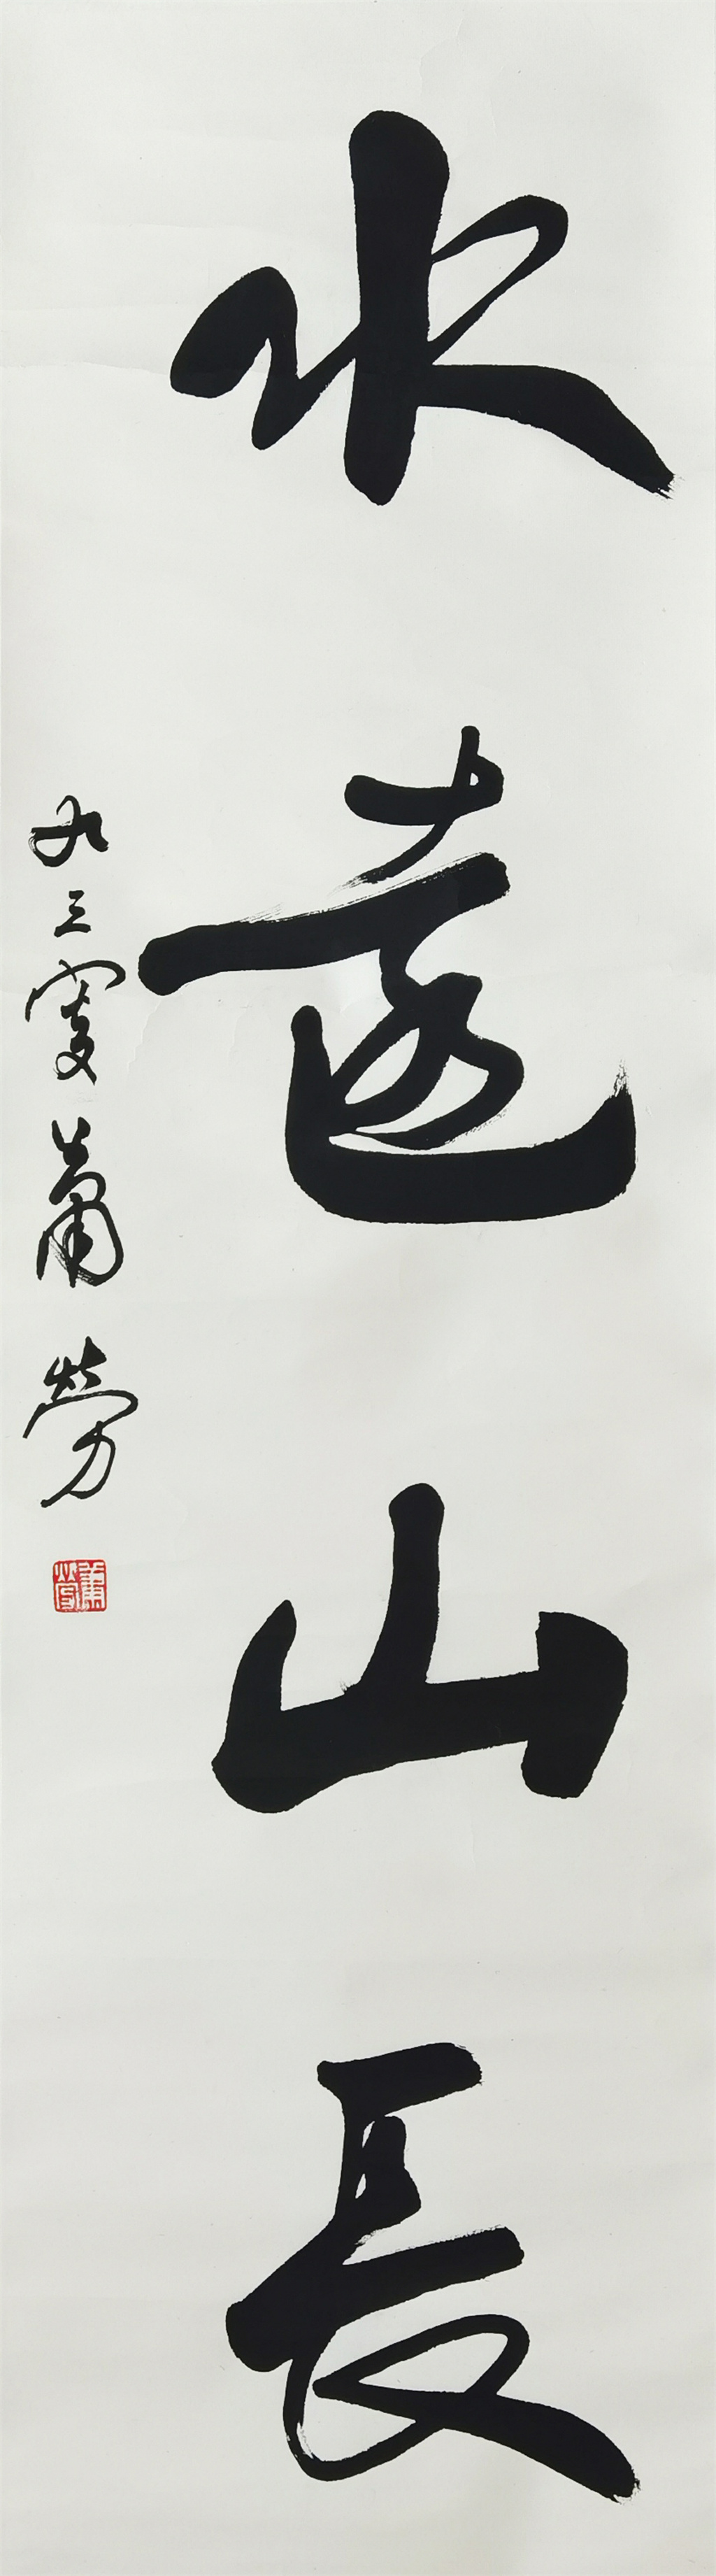 水遠山長
九三叟蕭勞
蕭勞